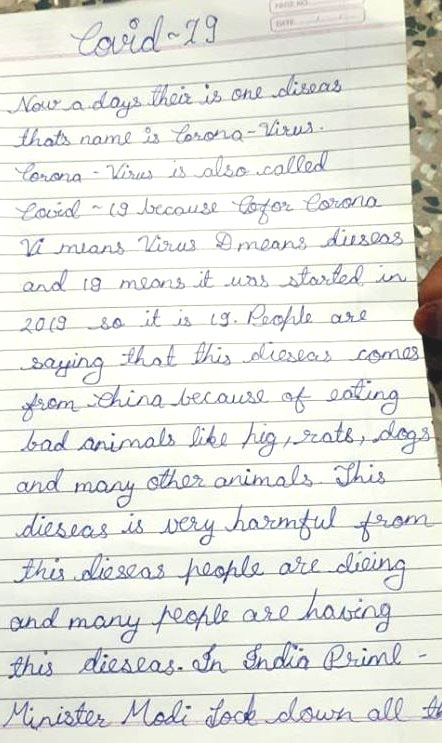 PAGE NO.
DATE
Covid ~ 19
Now a days their is one diseas
that's name is Corona-Virus.
Corona - Virus is also called
Covid ~ 19 because Cofor Corona
Vi means Virus D means dieseas
and 19 means it was started in
2019 so it is 19. People are
saying that this dieseas comes
from china because of eating
bad animals like pig, rats, dogs
and many other animals. This
dieseas is very harmful from
this dieseas people are dieing
and many people are having
this dieseas. In India Prime -
Minister Modi Lock down all